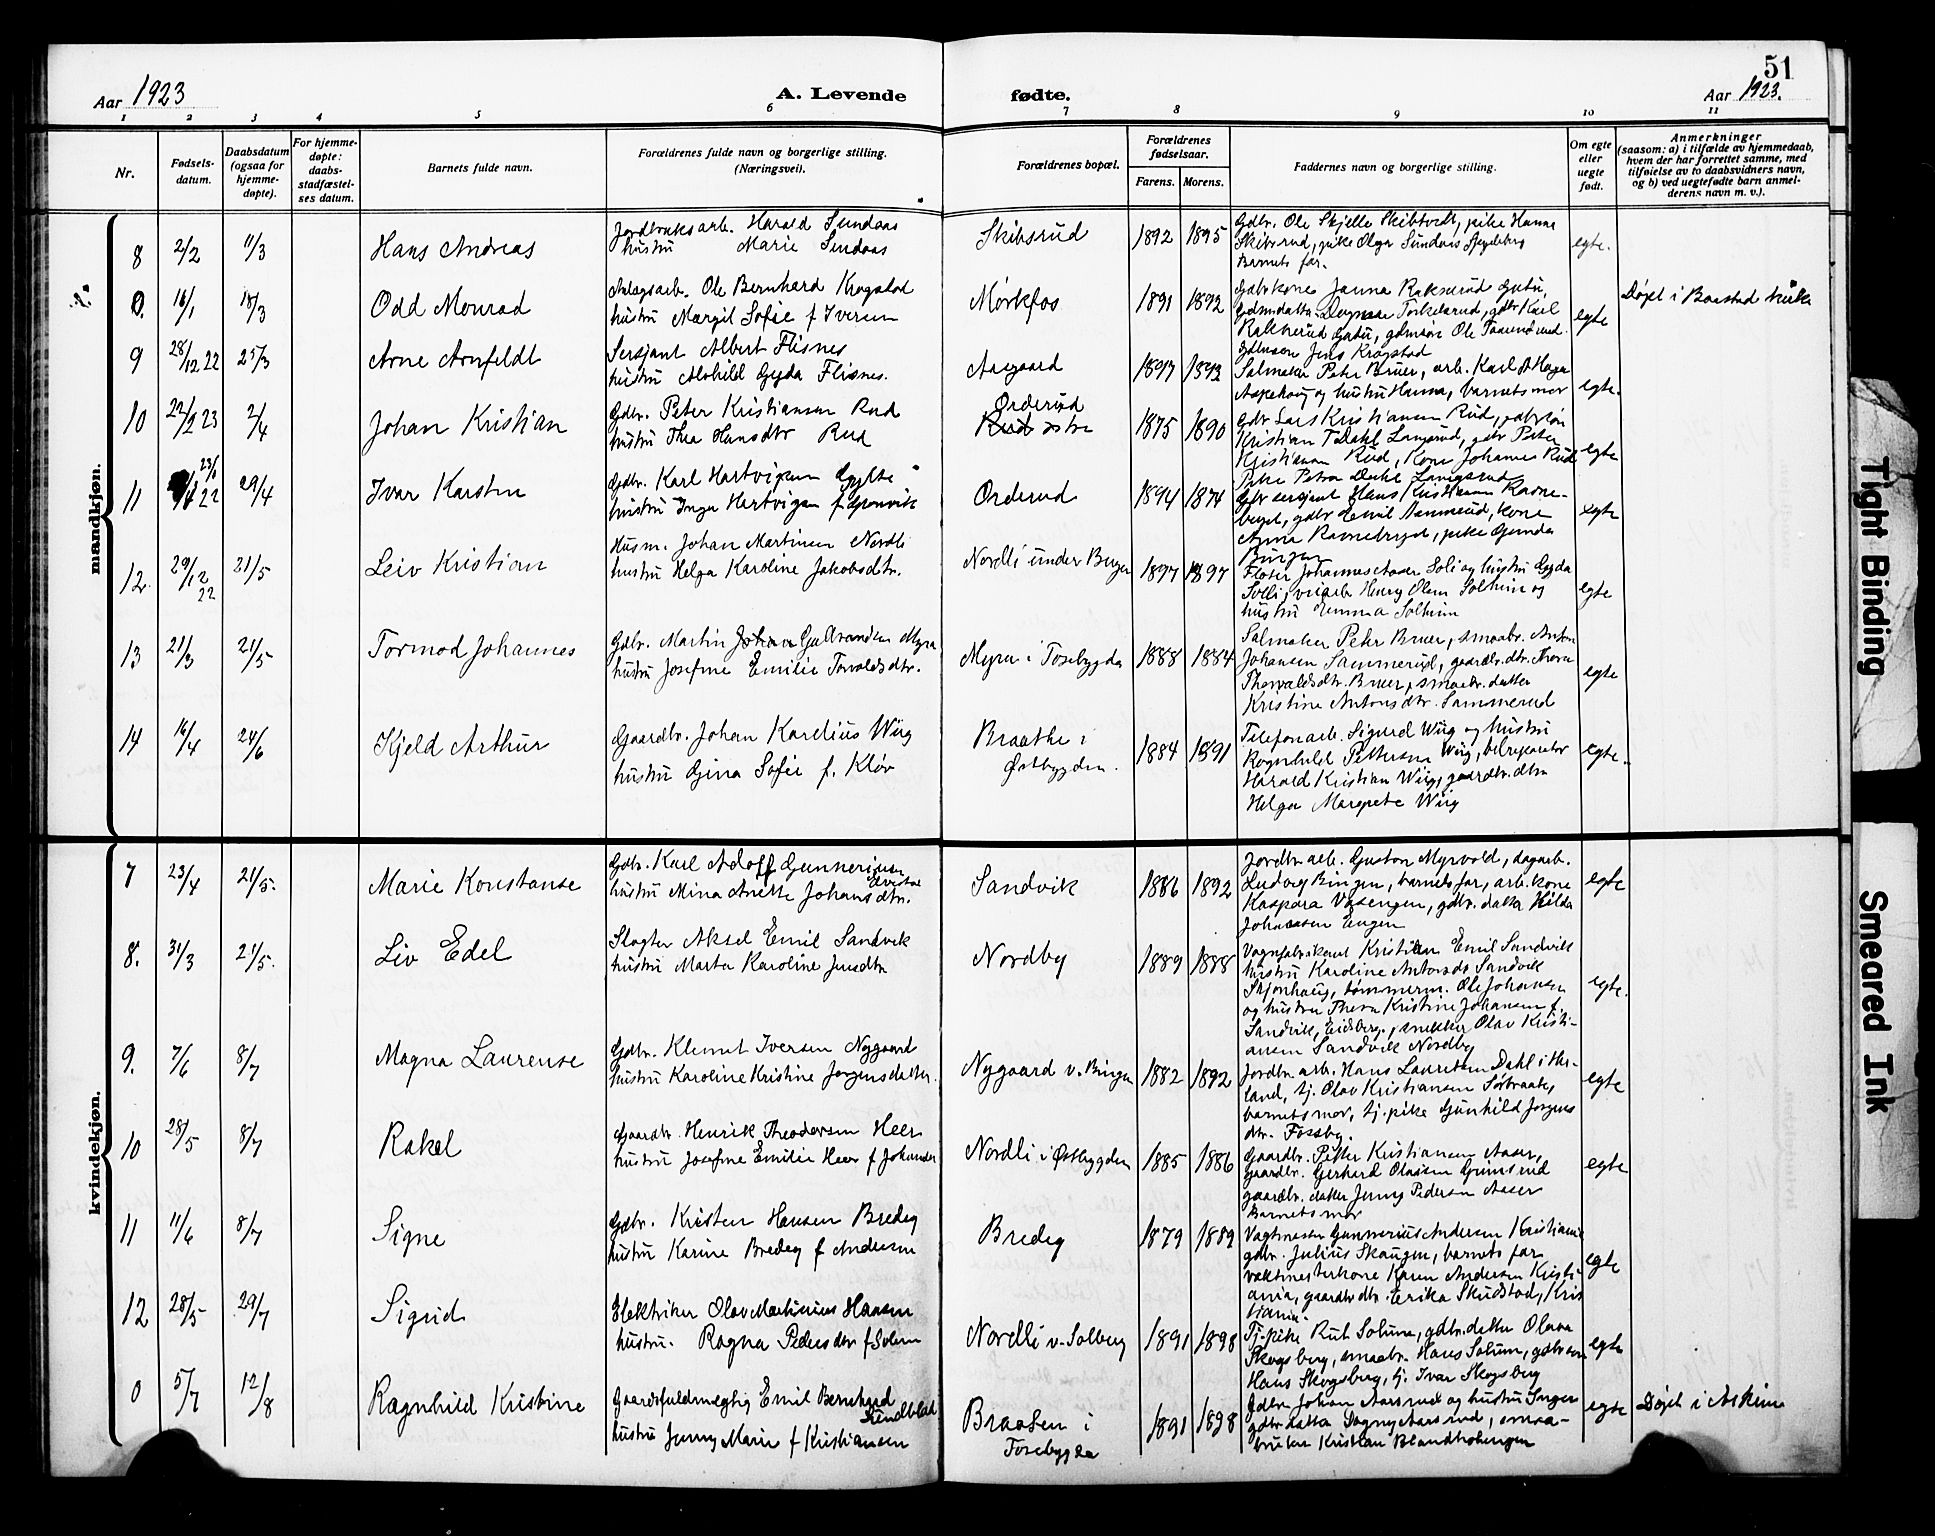 51
Aar 1923
A. Levende
fødte.
Aar 1923.
1 2 3 4 5 6 7 8 9 10 11
Nr.
Fødsels-
datum.
Daabsdatum
(ogsaa for
hjemme-
døpte).
For hjemme-
døpte:
daabs-
stadfæstel-
ses datum.
Barnets fulde navn.
Forældrenes fulde navn og borgerlige stilling.
(Næringsvei).
Forældrenes bopæl.
Forældrenes
fødselsaar.
Farens. Morens.
Faddernes navn og borgerlige stilling.
Om egte
eller
uegte
født.
Anmerkninger
(saasom: a) i tilfælde av hjemmedaab,
hvem der har forrettet samme, med
tilføielse av to daabsvidners navn,
og b) ved uegtefødte barn anmel-
derens navn m. v.).
mandkjøn.
8 2/2 11/3 Hans Andreas
Jordbruksarb. Harald Sundaas
hustru Marie Sundaas
Skibsrud 1892 1895
Gdbr. Ole Skjelle Skibtvedt, pike Hanna
Skibsrud, pike Olga Sundaas
Barnets far.
egte.
0. 16/1 18/3 Odd Monrad
Anlægsarb. Ole Bernhard Krogstad
hustru Margit Sofie f Iversen
Mørkfos 1891 1892
Gdbrkone Janna Rakserud
Torkelsrud, gdbr Karl
Gdbrsøn Jens Krogstad
egte
Døpt i Baastad kirke
9 28/12 22 25/3 Arne Arnfeldt
Sersjant Albert Flisnes
hustru Alvhild Gyda Flisnes.
Aasgaard 1897 1893
Salmaker Peter Bruer, arb. Karl A Haga
og hustru Hanna, barnets mor
egte.
10 22/2 23 2/4 Johan Kristian
Gdbr. Peter Kristiansen Rud
hustru Thea Hansdtr Rud
Orderud
Rud østre 1875 1890
Gdbr Lars Kristiansen Rud, gdbrsøn
Kristian T Dahl Langsrud, gdbr Peter
Kristiansen Rud, Kone Johanne Rud
Pike Petra Dahl Langsrud
egte
11 23/1 22 29/4 Ivar Karsten
Gdbr. Karl Hartvigsen
hustru Inga Hartvigsen f Grønvik
Orderud 1894 1874
Gdbr sersjant Hans Kristiansen Ravne-
berget, gdbr Emil Sammerud, kone
Anna Ravneberget, pike Gunda
Bingen
egte
12. 29/12 22 21/5 Leiv Kristian
Husm. Johan Martinsen Nordli
hustru Helga Karoline Jakobsdtr.
Nordli under Berger 1897 1897
Fløter Johannes Aaser Soli og hustru Gyda
Solli, veiarb Henry Olsen Solheim og
hustru Emma Solheim
egte
13 21/3 21/5 Tormod Johannes
Gdbr. Martin Johan Gulbrandsen Myra
hustru Josefine Emilie Torvaldsdtr.
Myra i Tosebygda 1888 1884
Salmaker Peter Bruer, smaabr. Anton
Johansen Sammerud, gaardbr.dtr. Thora
Thorvaldsdtr. Bruer, smaabr. datter
Kristine Antonsdtr. Sammerud
egte
14 16/4 24/6 Kjeld Arthur
Gaardbr. Johan Karelius Wiig
hustru Gina Sofie f. Kløv
Braathe i
Østbygden. 1884 1891
Telefonarb. Sigurd Wiig og hustru
Ragnhild Pettersen Wiig, bilreparatør
Harald Kristian Wiig, gaardbr. dtr.
Helga Margrete Wiig
egte.
kvindekjøn.
7 23/4 21/5. Marie Konstanse
Gdbr. Karl Adolf Gunneriusen
hustru Mina Anette Johansdtr.
Sandvik 1886 1892
Jordbr. arb. Gustav Myrvold, dagarb.
Ludvig Bingen, barnets far, arb. kone
Kaspara Vasengen, gdbr. datter Hilda
Johansen Engen
egte
8. 31/3 21/5. Liv Edel
Slagter Aksel Emil Sandvik
hustru Marta Karoline Jensdtr
Nordby 1889 1888
Vognfabrikant Kristian Emil Sandvik
hustru Karoline Antonsdtr Sandvik
Skjønhaug, tømmerm. Ole Johansen
og hustru Thora Kristine Johansen f.
Sandvik, Eidsberg, snekker Olav Kristi-
ansen Sandvik Nordby
egte.
9. 7/6 8/7 Magna Laurense
Gdbr. Klemet Iversen Nygaard
hustru Karoline Kristine Jørgensdatter.
Nygaard v. Bingen 1882 1892
Jordbr. arb. Hans Lauritsen Dahl i Her-
land, tj. Olav Kristiansen Sørbraate,
barnets mor, tj. pike Gunhild Jørgens
dtr. Fossby.
egte
10 28/5 8/7 Rakel
Gaardbr. Henrik Theodorsen Heer
hustru Josefine Emilie Heer f Johansen
Nordli i Østbygden 1885 1886
Gaardbr. Petter Kristiansen Aaser,
gaardbr. Gerhard Olausen Grimsrud
gaardbr. datter Jenny Pedersen Aaser
Barnets mor
egte
11 11/6 8/7 Signe
Gdbr. Kristen Hansen Bredeg
hustru Karine Bredeg f Andersen
Bredeg 1879 1889
Vagtmester Gunnerius Andersen Kristiania
gdbr. Julius Skaugen, barnets far
vaktmesterkone Karen Andersen Kristi-
ania, gaardbr dtr. Erika Skudstad, Kris
tiania.
egte
12 28/5 29/7 Sigrid
Elektriker Olav Martinius Hansen
hustru. Ragna Pedersdtr f Solum
Nordli v. Solberg 1891 1898
Tj. pike Rut Solum, gdbr. datter Olava
Skogsberg, smaabr. Hans Solum, gdbr søn
Hans Skogsberg, tj. Ivar Skogsberg
egte
0 5/7 12/8 Ragnhild Kristine
Gaardsfuldmægtig Emil Bernhard
Lindblad
hustru Jenny Marie f Kristiansen
Braaten i
Tosebygda 1891 1898
Gdbr. Johan Aarsrud og hustru Inger
gdbr datter Dagny Aarsrud, smaa-
bruker Kristian Blandholingen
egte
Døpt i Askim
Tight Binding
Smeared Ink